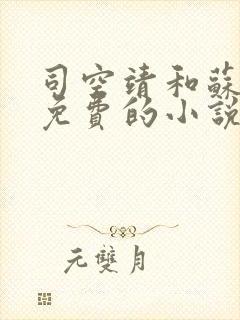 司空靖和蘇
免費的小說
元雙月